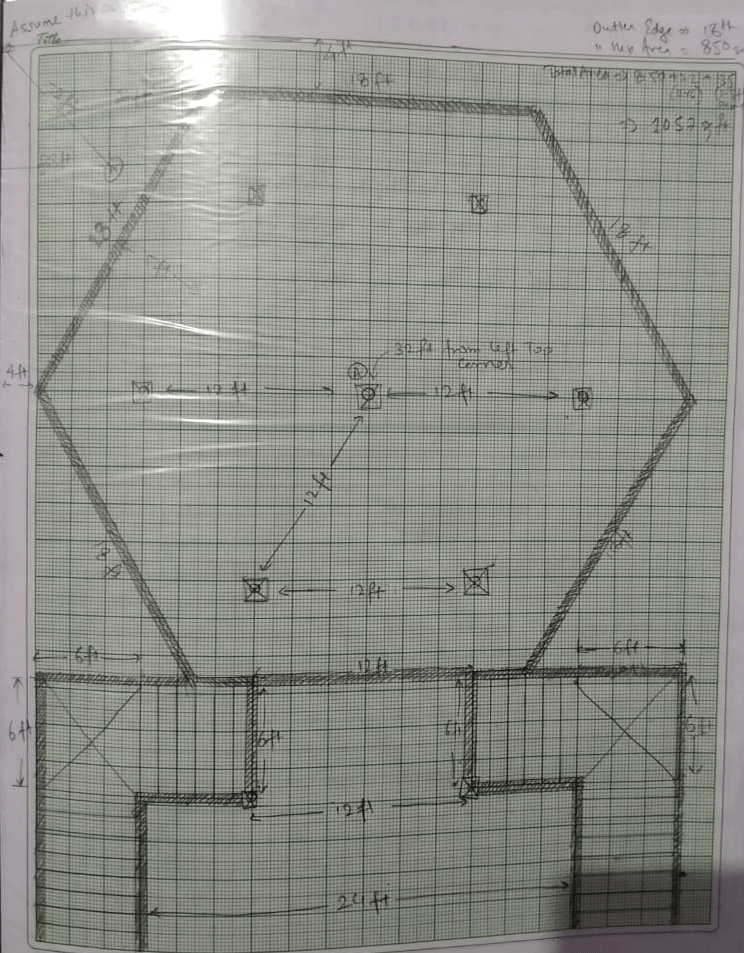 Assume this
Title
Outer Edge => 18ft
" Hex Area = 850
=> 1057 sqft
4 ft
18 ft
18 ft
18 ft
A
32 ft from left Top
corner
4ft
12 ft
12 ft
12 ft
12 ft
18 ft
6 ft
12 ft
6 ft
6 ft
6 ft
6 ft
6 ft
12 ft
24 ft